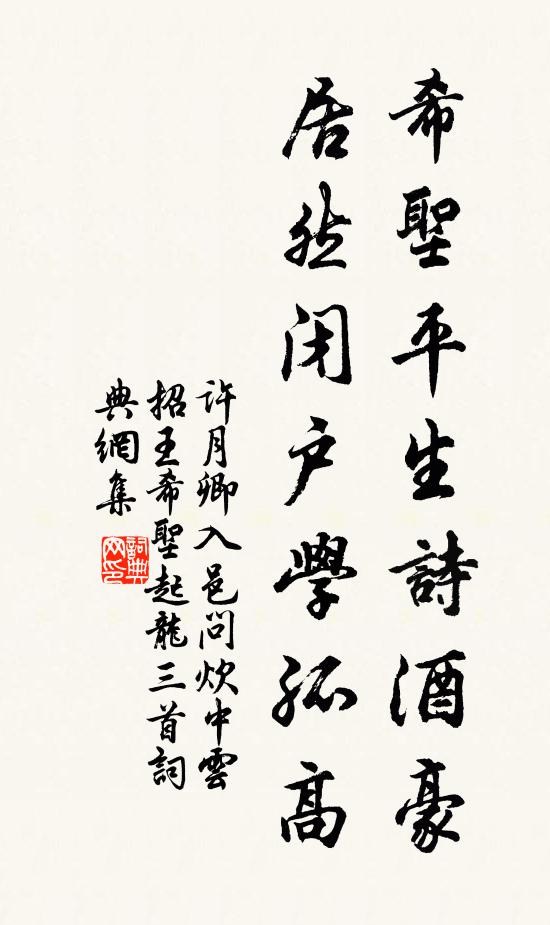 希聖平生詩酒豪
居然閉戶學孤高
許月卿入邑問炊中雲
招王希聖起龍三首詞
典網集
詞典網印